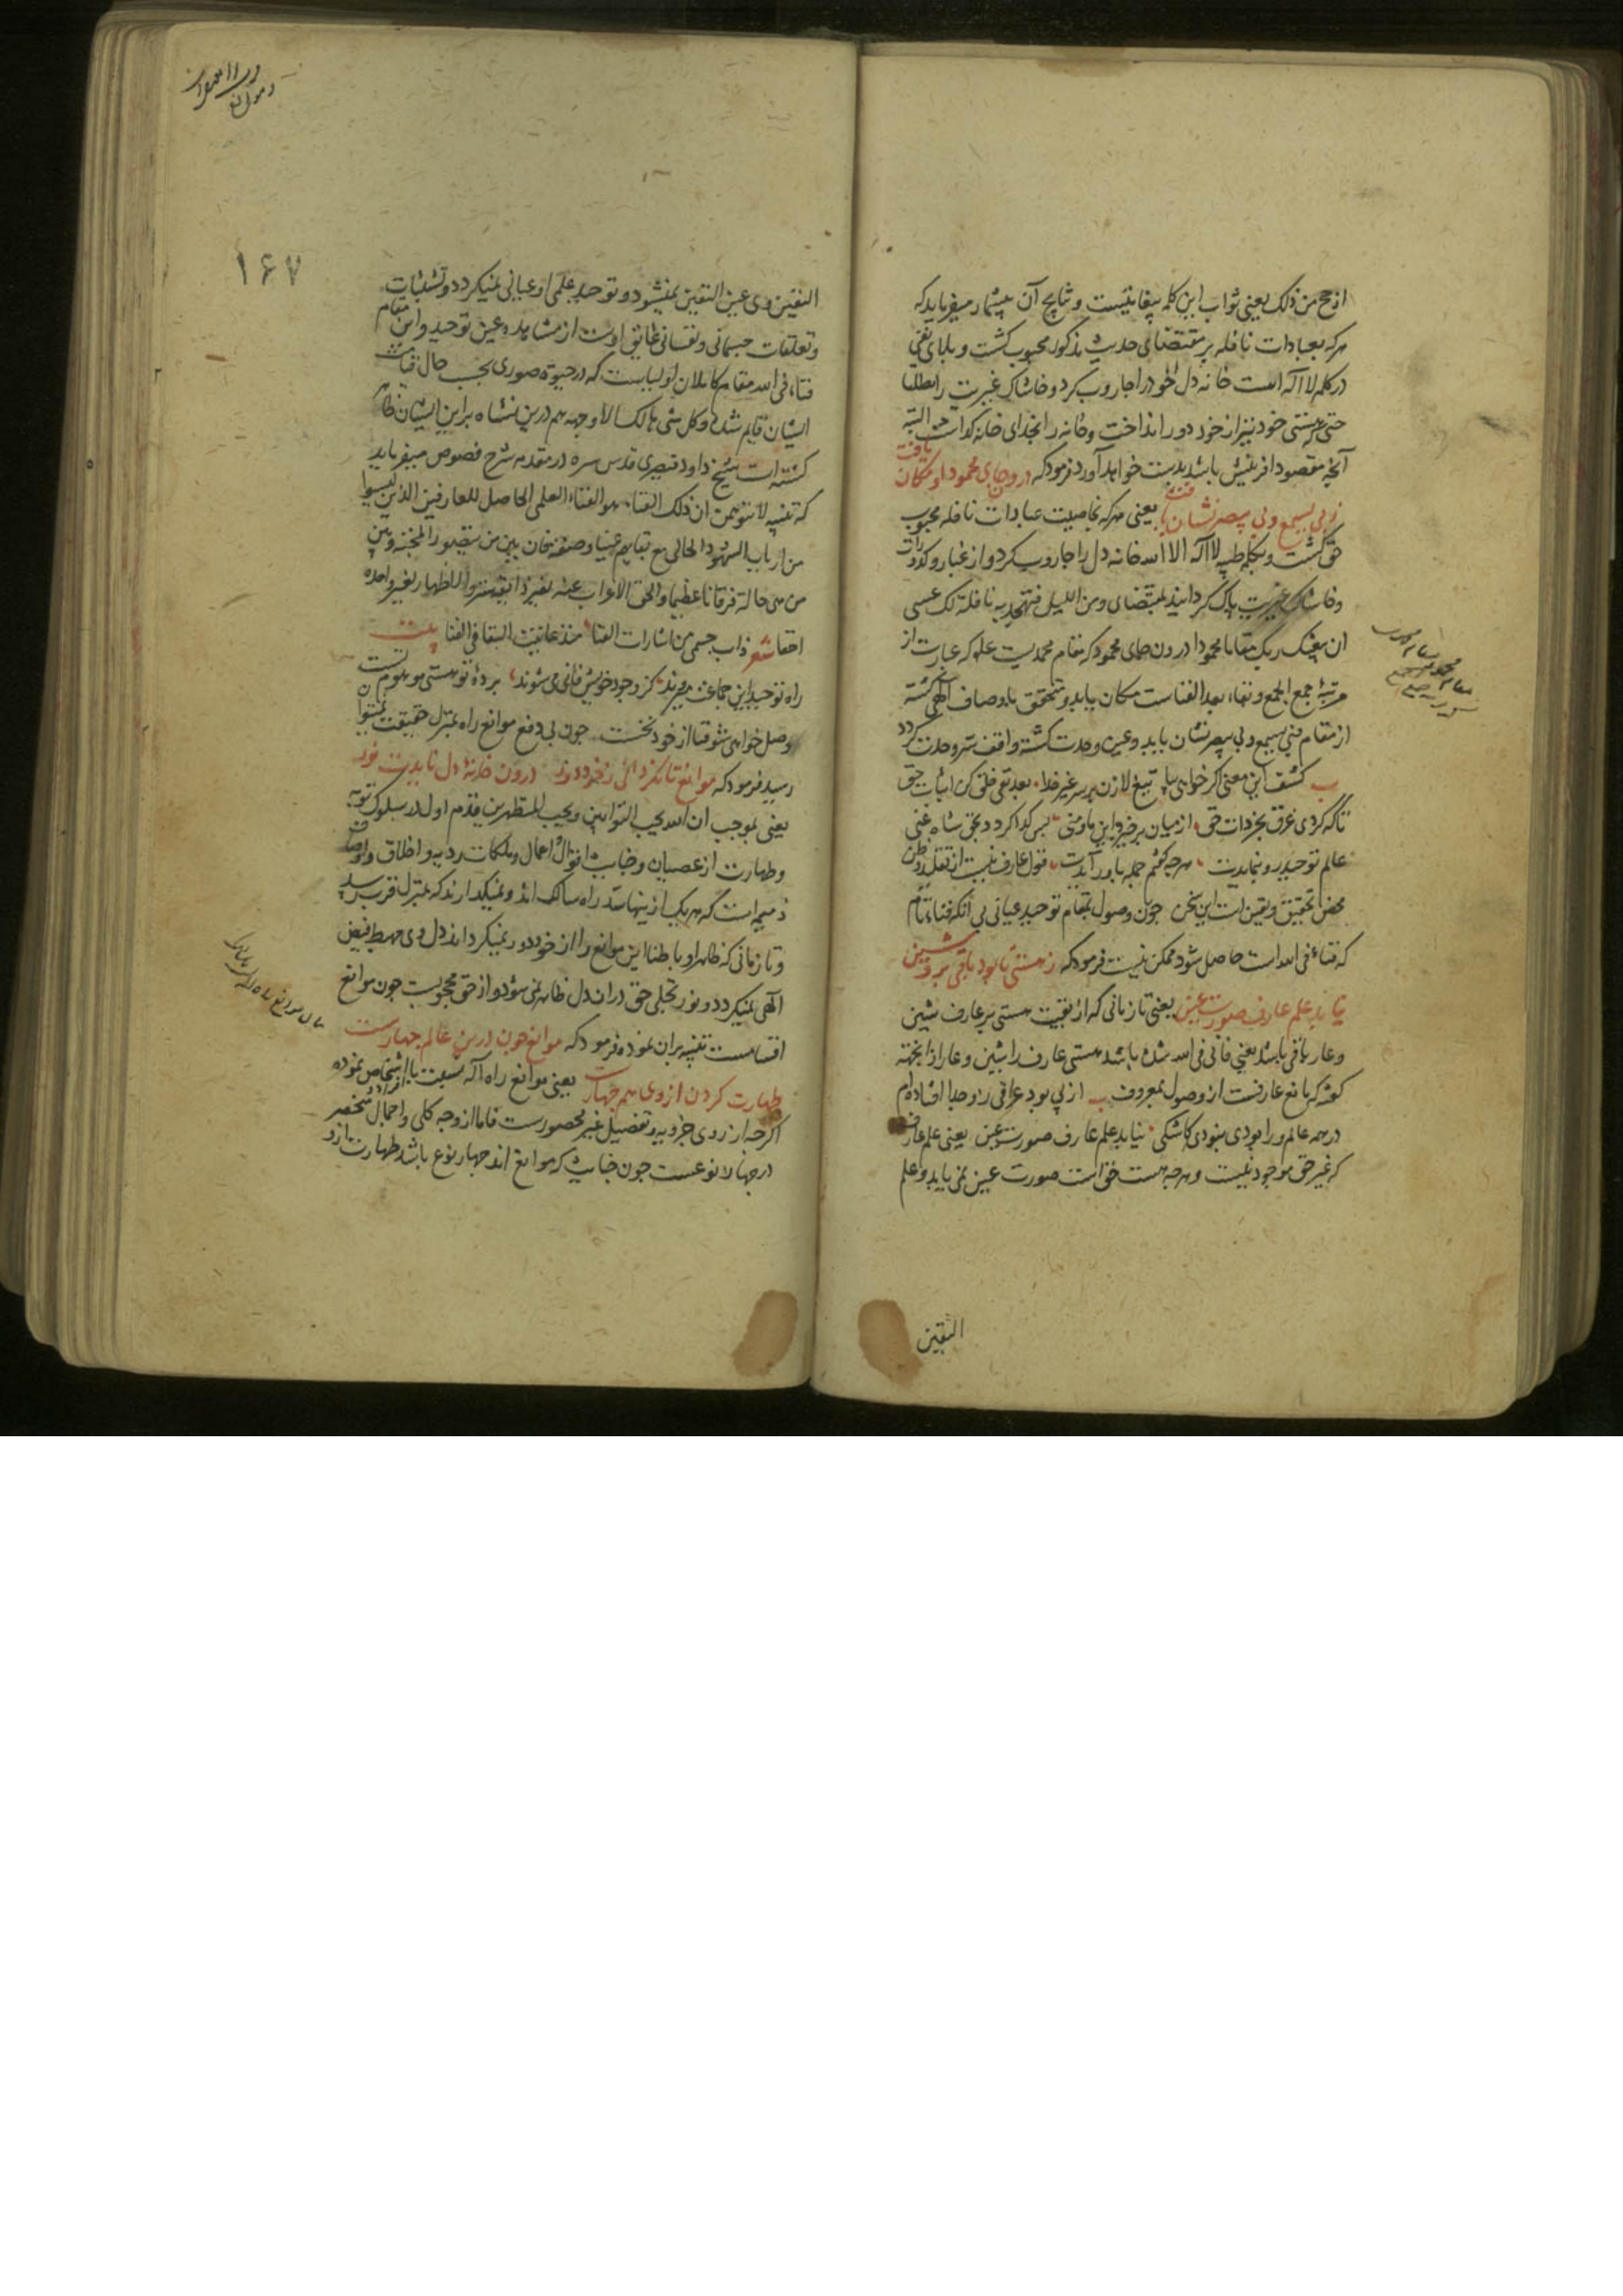 ارجح من ذلک یعنی ثواب این کلمه بیغایتست و نتایج آن بیشمار میفرماید که
هرکه بعبادات نافله بر مقتضای حدیث مذکور محبوب کشت و بلای نفی
در کلمه لا اله است خانه دل خود را جاروب کرد و خاشاک غیریت را مطلقا
حتی که هستی خود نیز از خود دور انداخت و خانه را بخدای خانه گذاشت البته
آنچه مقصود افرینش باشد بدست خواهد آورد فرمود که درون جای محمود او مکان یافت
ز بی یسمع و بی یبصر نشان یافت یعنی هرکه بخاصیت عبادات نافله محبوب
حق گشت و بکلمه طیبه لا اله الا الله خانه دل را جاروب کرد و از غبار و کدورات
و خاشاک غیریت پاک گردانید بمقتضای و من اللیل فتهجد به نافلة لک عسی
ان یبعثک ربک مقاما محمودا درون جای محمود که مقام محمدیست علم که عبارت از
مرتبهٔ جمع الجمع و بقاء بعد الفناست مکان یابد و متحقق باوصاف الهی گشته
از مقام فبی یسمع و بی یبصر نشان یابد و عین وحدت گشته واقف سر وحدت گردد
کشف این معنی اگر خواهی بیا تیغ لا زن بر سر غیر خدا بعد نفی خلق کن اثبات حق
تا که گردی غرق بحر ذات حق از میان برخیزد این ما و منی پس گدا گردد بحق شاه غنی
عالم توحید رو بنمایدت هرچه گفتم جمله باور آیدت قول عارف نیست از تقلید و ظن
محض تحقیق و یقین است این سخن چون وصول بمقام توحید عیانی بی آنکه فناء تام
که فناء فی الله است حاصل شود ممکن نیست فرمود که ز هستی تا بود باقی برو شین
نیابد علم عارف صورت عین یعنی تا زمانی که از بقیت هستی بر عارف شین
و عار باقی باشد یعنی فانی فی الله شده باشد هستی عارف را شین و عار ازانجهته
گوئ که مانع عارفست از وصول بمعروف از پی بود عراقی زو جدا افتاده ام
در همه عالم ورا بودی نبودی کاشکی نیابد علم عارف صورت عین یعنی علم عارف
که غیر حق موجود نیست و هرچه هست حق است صورت عین نمی یابد و علم
الیقین
۱۶۷
الیقین وی عین الیقین نمیشود و توحید علمی او عیانی نمیگردد و تشبثات
و تعلقات جسمانی و نفسانی عایق اوست از مشاهده عین توحید و این مقام
فناء فی الله مقام کاملان اولیاست که در حیوة صوری بحسب حال قیامت
ایشان قایم شده و کل شی هالک الا وجهه هم درین نشاه براین ایشان ظاهر
گشته است شیخ داود قیصری قدس سره در مقدمه شرح فصوص میفرماید
که تنبیه لا تتوهمن ان ذلک الفناء هو الفناء العلمی الحاصل للعارفین الذین لیسوا
من ارباب الشهود الحالی مع بقایهم عینا و صفة فان بین من یتصور المحبة و بین
من هی حاله فرقانا عظیما والحق الاعراب عنه لغیر ذایقه ستر والاظهار لغیر واجده
اخفا شعر ذاب جسمی من اشارات الفنا منذ عاینت البقا فی الفنا بیت
راه توحید این جماعت میروند کز وجود خویش فانی می شوند پردهٔ تو هستی موهوم تست
وصل خواهی شو فنا از خود نخست چون بی دفع موانع راه بمنزل حقیقت نمیتوان
رسید فرمود که موانع تا نگردانی ز خود دور درون خانهٔ دل نایدت نور
یعنی بموجب ان الله یحب التوابین و یحب المتطهرین قدم اول در سلوک توبه
و طهارت از عصیان و خباثت افوال و اعمال و ملکات ردیه و اخلاق و اوصاف
ذمیمه است که هریک ازینها سد راه سالک اند و نمیگذارند که بمنزل قرب رسد
و تا زمانی که ظاهرا و باطنا این موانع را از خود دور نمیگرداند دل وی مهبط فیض
الهی نمیگردد و نور تجلی حق دران دل ظاهر نمی شود و از حق محجوبست چون موانع
اقسامست تنبیه بران نموده فرمود که موانع چون درین عالم چهارست
طهارت کردن از وی هم چهارست یعنی موانع راه آله نسبت با اشخاص نموده
اگرچه از روی جزویه و تفصیل غیر محصورست فاما از وجه کلی و اجمال منحصر
در چهار نوعست چون خبایث که موانع اند چهار نوع باشد طهارت ازو